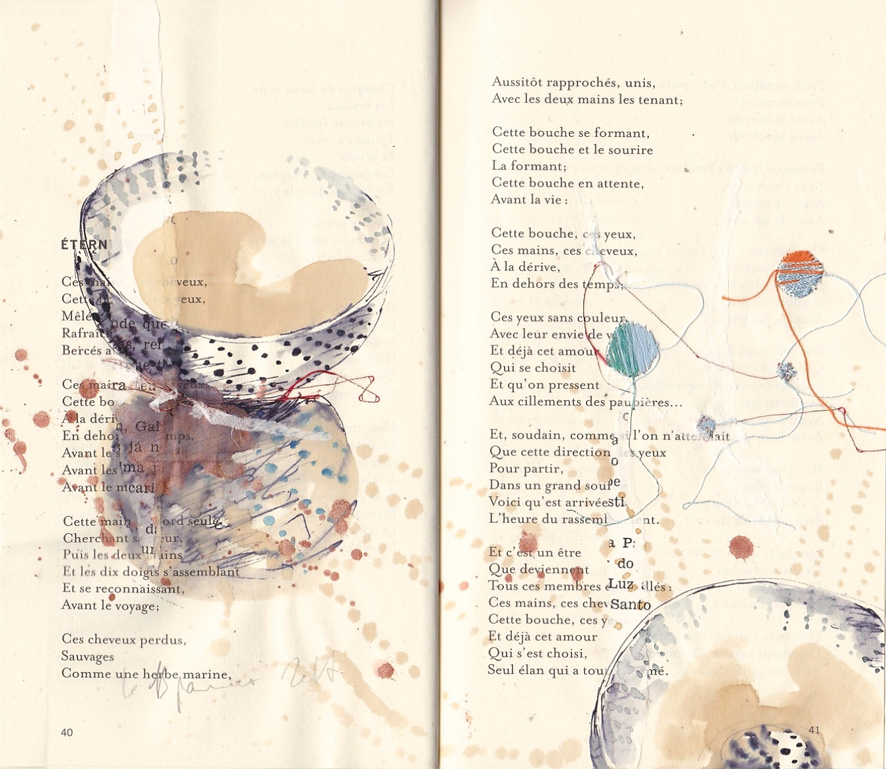 ÉTERN
Mêlé
Rafraî
Bercés a
En deho mps,
Avant le
Avant les
Cette main ord seule,
Puis les deux ains
Et les dix doigts s'assemblant
Et se reconnaissant,
Avant le voyage;
Ces cheveux perdus,
Sauvages
Comme une herbe marine,
40
Aussitôt rapprochés, unis,
Avec les deux mains les tenant;
Cette bouche se formant,
Cette bouche et le sourire
La formant;
Cette bouche en attente,
Avant la vie :
Cette bouche, ces yeux,
Ces mains, ces cheveux,
À la dérive,
En dehors des temps;
Ces yeux sans couleur,
Avec leur envie de v
Et déjà cet amour
Qui se choisit
Et qu'on pressent
Aux cillements des paupières...
Et, soudain, comme si l'on n'attendait
Que cette direction des yeux
Pour partir,
Dans un grand souf
Voici qu'est arrivée
L'heure du rassembl ent.
Et c'est un être
Que deviennent
Tous ces membres é illés :
Ces mains, ces chev
Cette bouche, ces y
Et déjà cet amour
Qui s'est choisi,
Seul élan qui a tou né.
a P
do
Luz
Santo
41